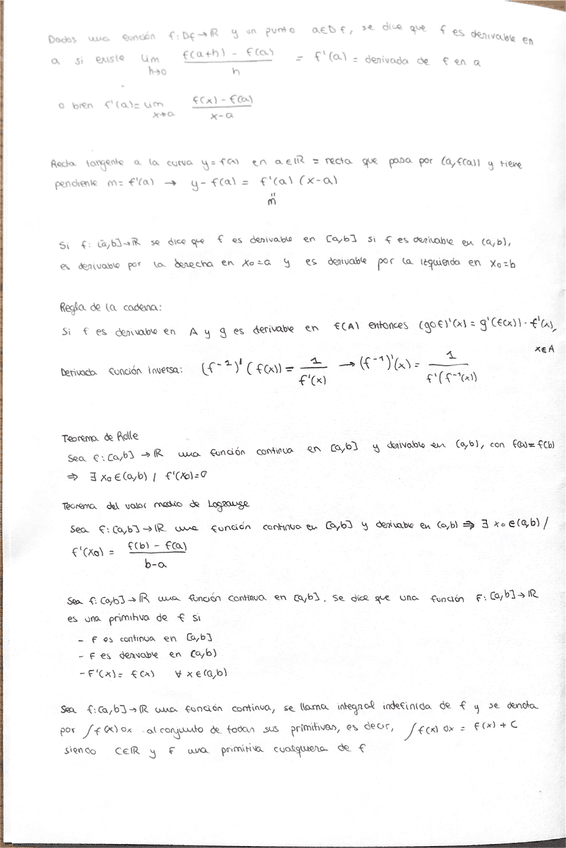 Dados una función f: Df → ℝ y un punto a ∈ Df, se dice que f es derivable en
a si existe lim h→0 (f(a+h) - f(a))/h = f'(a) = derivada de f en a
o bien f'(a) = lim x→a (f(x) - f(a))/(x-a)
Recta tangente a la curva y = f(x) en a ∈ ℝ = recta que pasa por (a, f(a)) y tiene
pendiente m = f'(a) → y - f(a) = f'(a) (x-a)
m
Si f: [a,b] → ℝ se dice que f es derivable en [a,b] si f es derivable en (a,b),
es derivable por la derecha en x₀=a y es derivable por la izquierda en x₀=b
Regla de la cadena:
Si f es derivable en A y g es derivable en f(A) entonces (g∘f)'(x) = g'(f(x)) · f'(x),
x∈A
Derivada función inversa: (f⁻¹)'(f(x)) = 1/f'(x) → (f⁻¹)'(x) = 1/f'(f⁻¹(x))
Teorema de Rolle
Sea f: [a,b] → ℝ una función continua en [a,b] y derivable en (a,b), con f(a) = f(b)
⇒ ∃ x₀ ∈ (a,b) / f'(x₀) = 0
Teorema del valor medio de Lagrange
Sea f: [a,b] → ℝ una función continua en [a,b] y derivable en (a,b) ⇒ ∃ x₀ ∈ (a,b) /
f'(x₀) = (f(b) - f(a))/(b-a)
Sea f: [a,b] → ℝ una función continua en [a,b]. Se dice que una función F: [a,b] → ℝ
es una primitiva de f si
- F es continua en [a,b]
- F es derivable en (a,b)
- F'(x) = f(x) ∀ x ∈ (a,b)
Sea f: [a,b] → ℝ una función continua, se llama integral indefinida de f y se denota
por ∫f(x) dx al conjunto de todas sus primitivas, es decir, ∫f(x) dx = F(x) + C
siendo C∈ℝ y F una primitiva cualquiera de f